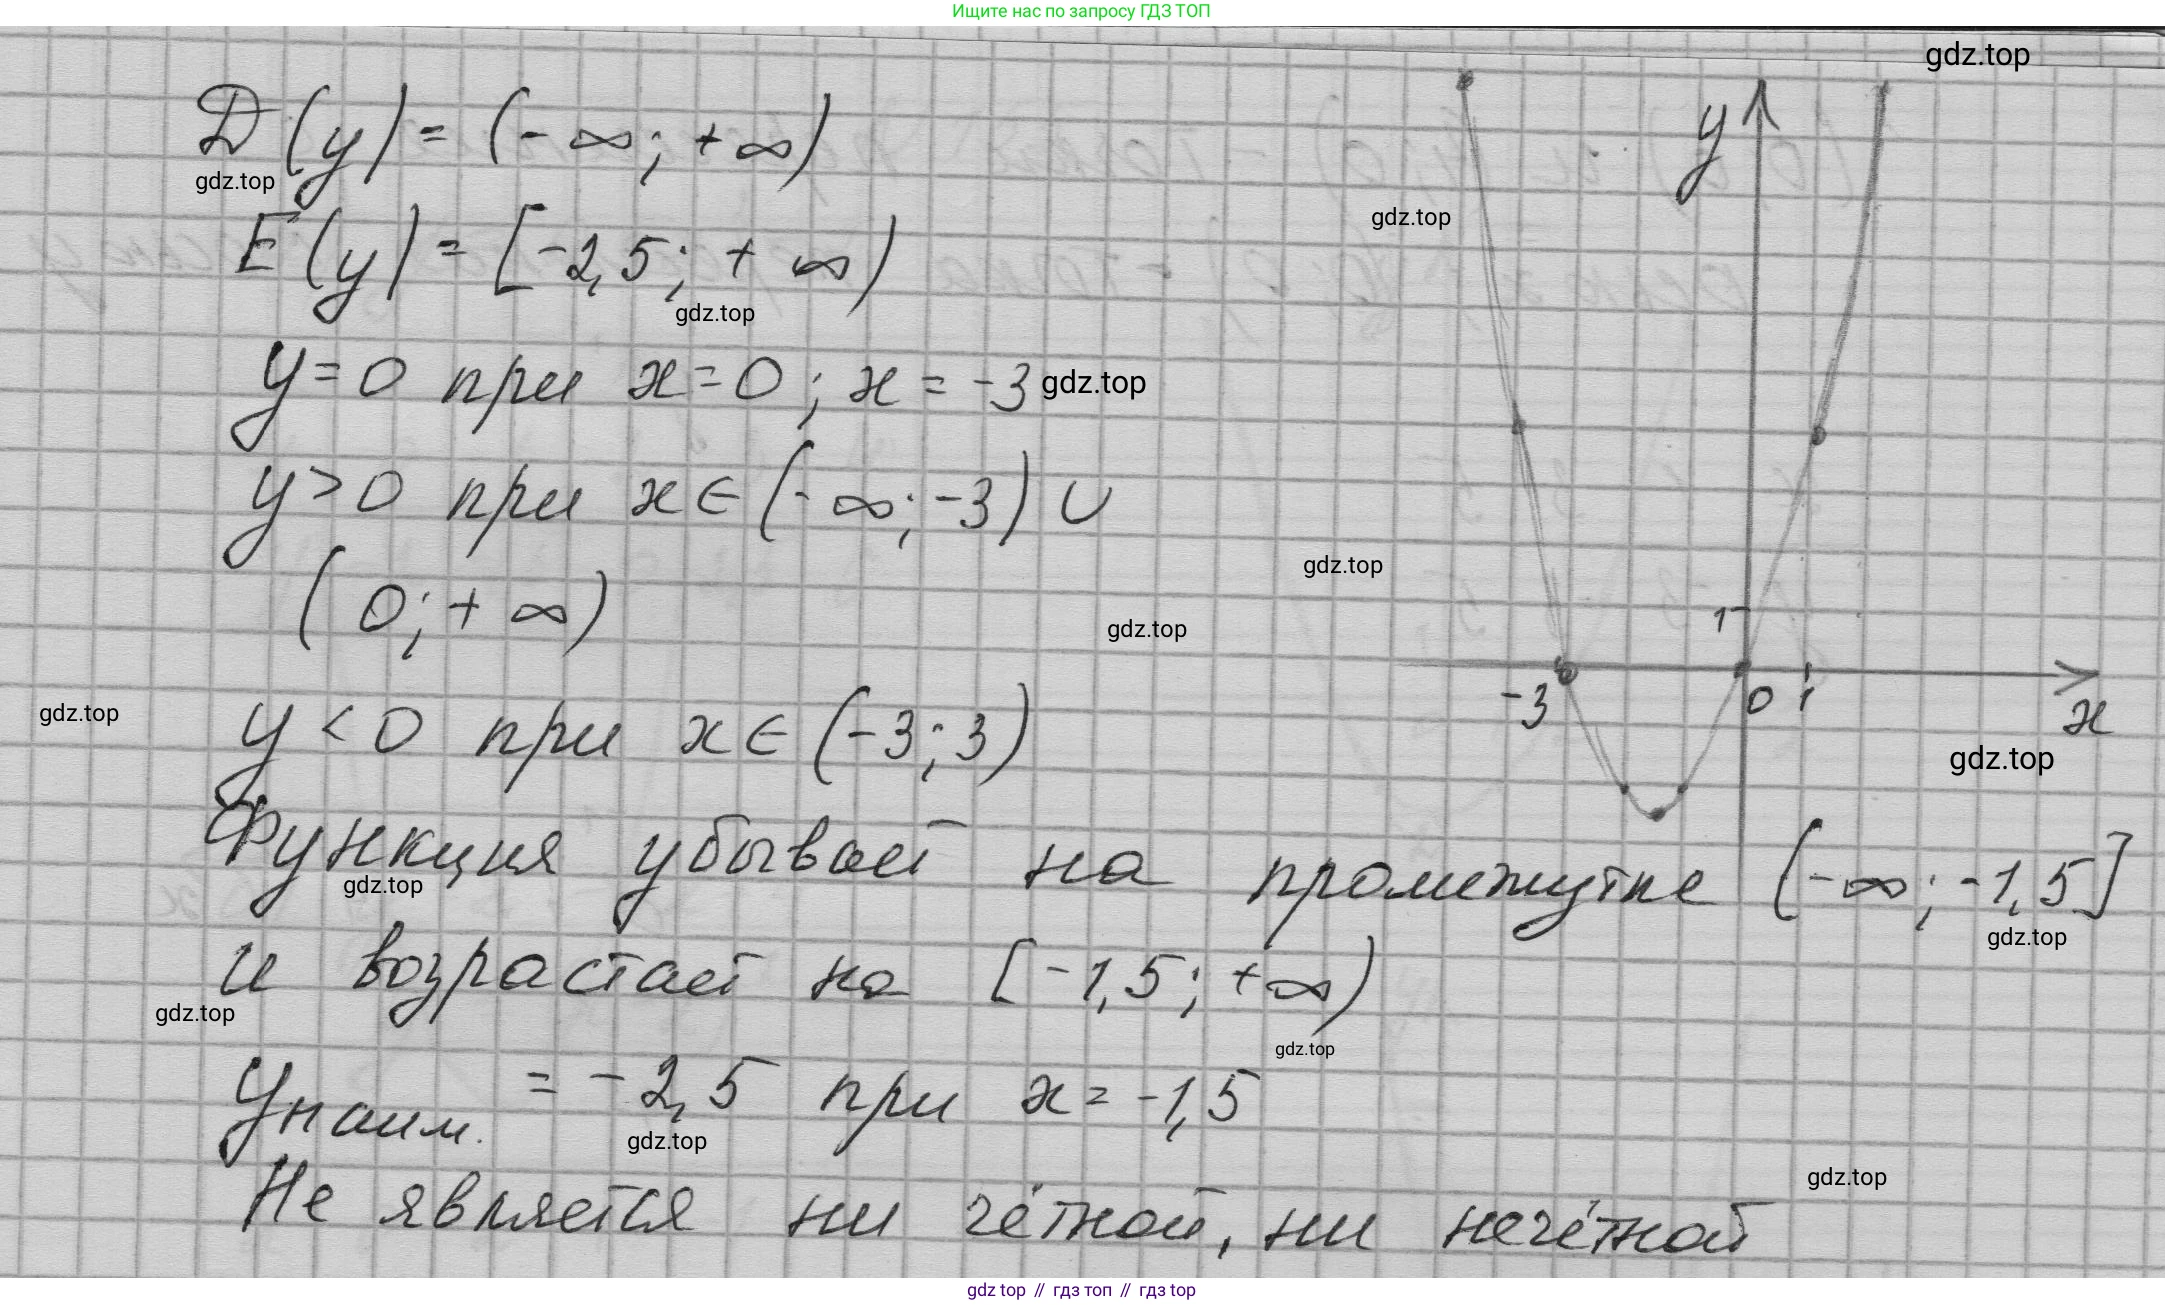 Ищите нас по запросу ГДЗ ТОП
gdz.top
D(y) = (-∞; +∞)
gdz.top
gdz.top
E(y) = [-2,5; +∞)
gdz.top
y = 0 при x = 0; x = -3
gdz.top
y > 0 при x ∈ (-∞; -3) ∪
(0; +∞)
gdz.top
gdz.top
gdz.top
y < 0 при x ∈ (-3; 3)
y
1
-3
0
1
x
gdz.top
Функция убывает на промежутке (-∞; -1,5]
gdz.top
gdz.top
и возрастает на [-1,5; +∞)
gdz.top
gdz.top
yнаим. = -2,5 при x = -1,5
gdz.top
gdz.top
Не является ни чётной, ни нечётной
gdz top // гдз топ // гдз top